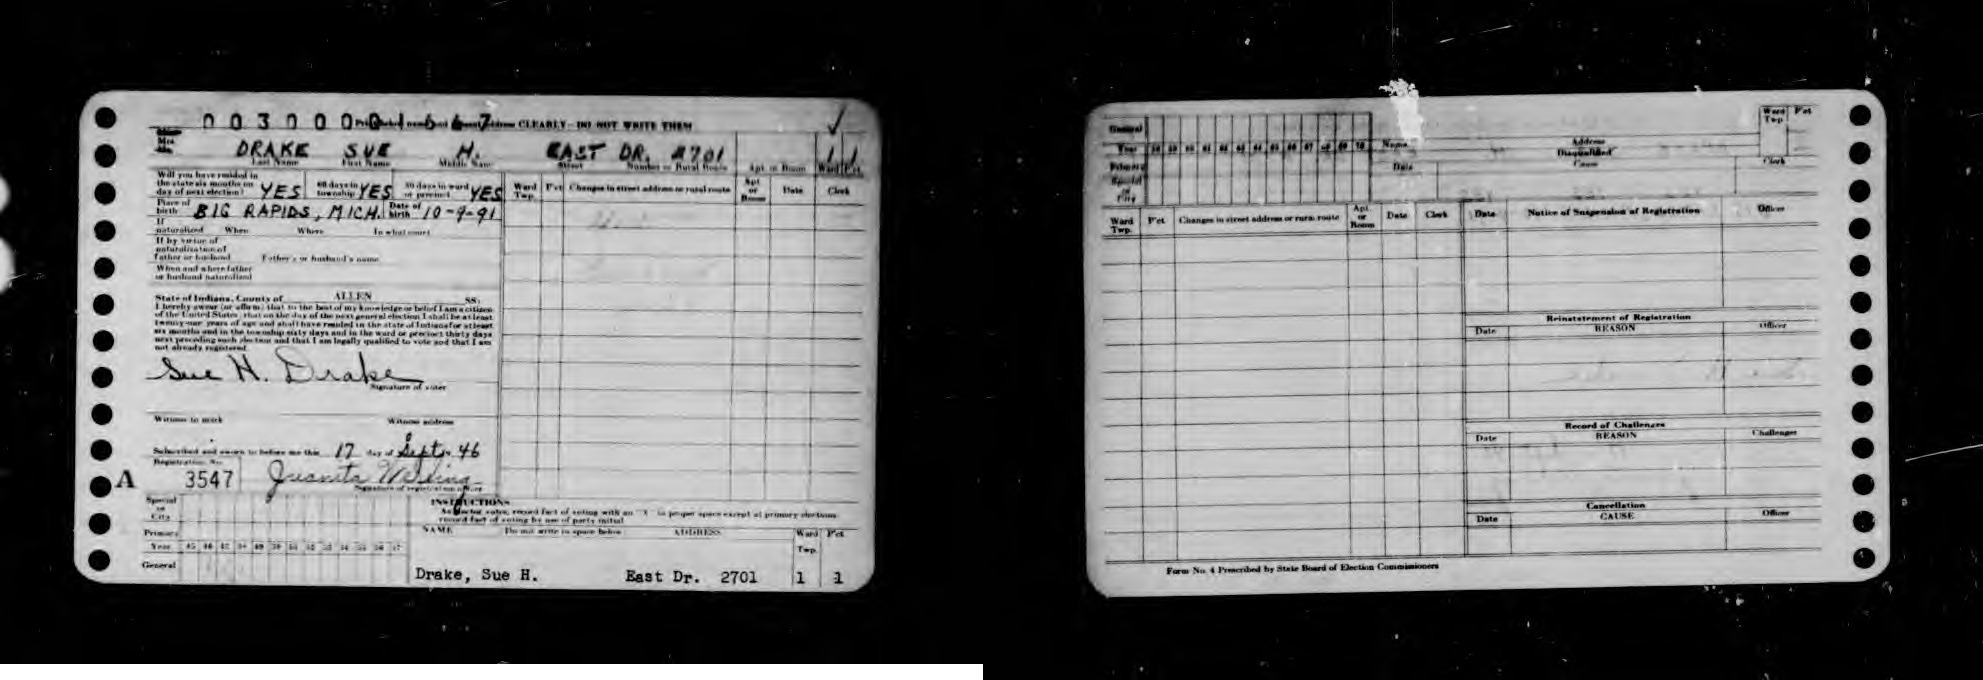 00300001567
Print name and present address CLEARLY - DO NOT WRITE THEM
Mrs.
DRAKE SUE H. EAST DR. 2701 1 1
Last Name First Name Middle Name Street Number or Rural Route Apt. or Room Ward Pct.
Will you have resided in the state six months on day of next election? YES 60 days in township YES 30 days in ward or precinct YES
Place of birth BIG RAPIDS, MICH. Date of birth 10-9-91
If naturalized When Where In what court
If by virtue of naturalization of father or husband Father's or husband's name
When and where father or husband naturalized
State of Indiana, County of ALLEN SS:
I hereby swear (or affirm) that to the best of my knowledge or belief I am a citizen
of the United States, that on the day of the next general election I shall be at least
twenty-one years of age and shall have resided in the state of Indiana for at least
six months and in the township sixty days and in the ward or precinct thirty days
next preceding such election and that I am legally qualified to vote and that I am
not already registered.
Sue H. Drake
Signature of voter
Witness to mark Witness address
Subscribed and sworn to before me this 17 day of Sept. 19 46
Registration No.
A 3547 Juanita
Signature of registration officer
Ward Twp. Pct. Changes in street address or rural route Apt. or Room Date Clerk
Special or City
Primary
Year 45 46 47 48 49 50 51 52 53 54 55 56 57
General
INSTRUCTIONS
As elector votes, record fact of voting with an "X" in proper space except at primary elections
record fact of voting by use of party initial
NAME Do not write in space below ADDRESS Ward Twp. Pct.
Drake, Sue H. East Dr. 2701 1 1
General
Year 58 59 60 61 62 63 64 65 66 67 68 69 70
Primary
Special or City
Name Address Ward Twp. Pct.
Disqualified
Date Cause Clerk
Ward Twp. Pct. Changes in street address or rural route Apt. or Room Date Clerk
Date Notice of Suspension of Registration Officer
Reinstatement of Registration
Date REASON Officer
Record of Challenges
Date REASON Challenger
Cancellation
Date CAUSE Officer
Form No. 4 Prescribed by State Board of Election Commissioners